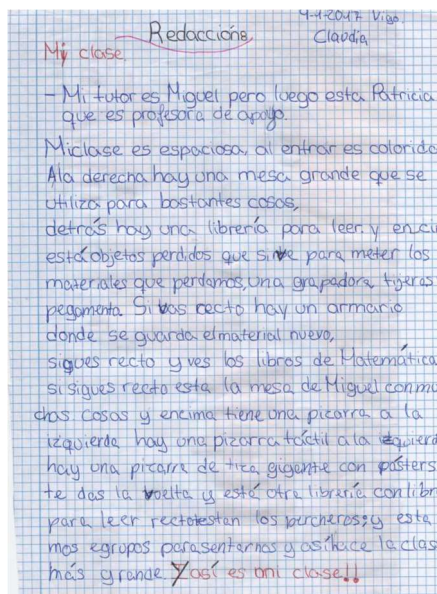 Redacción
4-1-2017 Vigo
Claudia
Mi clase
- Mi tutor es Miguel pero luego esta Patricia
que es profesora de apoyo.
Miclase es espaciosa, al entrar es colorido
Ala derecha hay una mesa grande que se
utiliza para bastantes cosas,
detrás hay una librería para leer y enci
está objetos perdidos que sirve para meter los
materiales que perdamos, una grapadora tijeras
pegamento. Si vas recto hay un armario
donde se guarda elmaterial nuevo,
sigues recto y ves los libros de Matemática
si sigues recto esta la mesa de Miguel con mu
chas cosas y encima tiene una pizarra a la
izquierda hay una pizarra táctil a la izquierd
hay una pizarra de tiza gigente con pósters
te das la vuelta y está otra librería con libr
para leer recto estan los percheros; y esta
mos egrupos parasentarnos y asíhace la clas
más grande Y así es mi clase!!